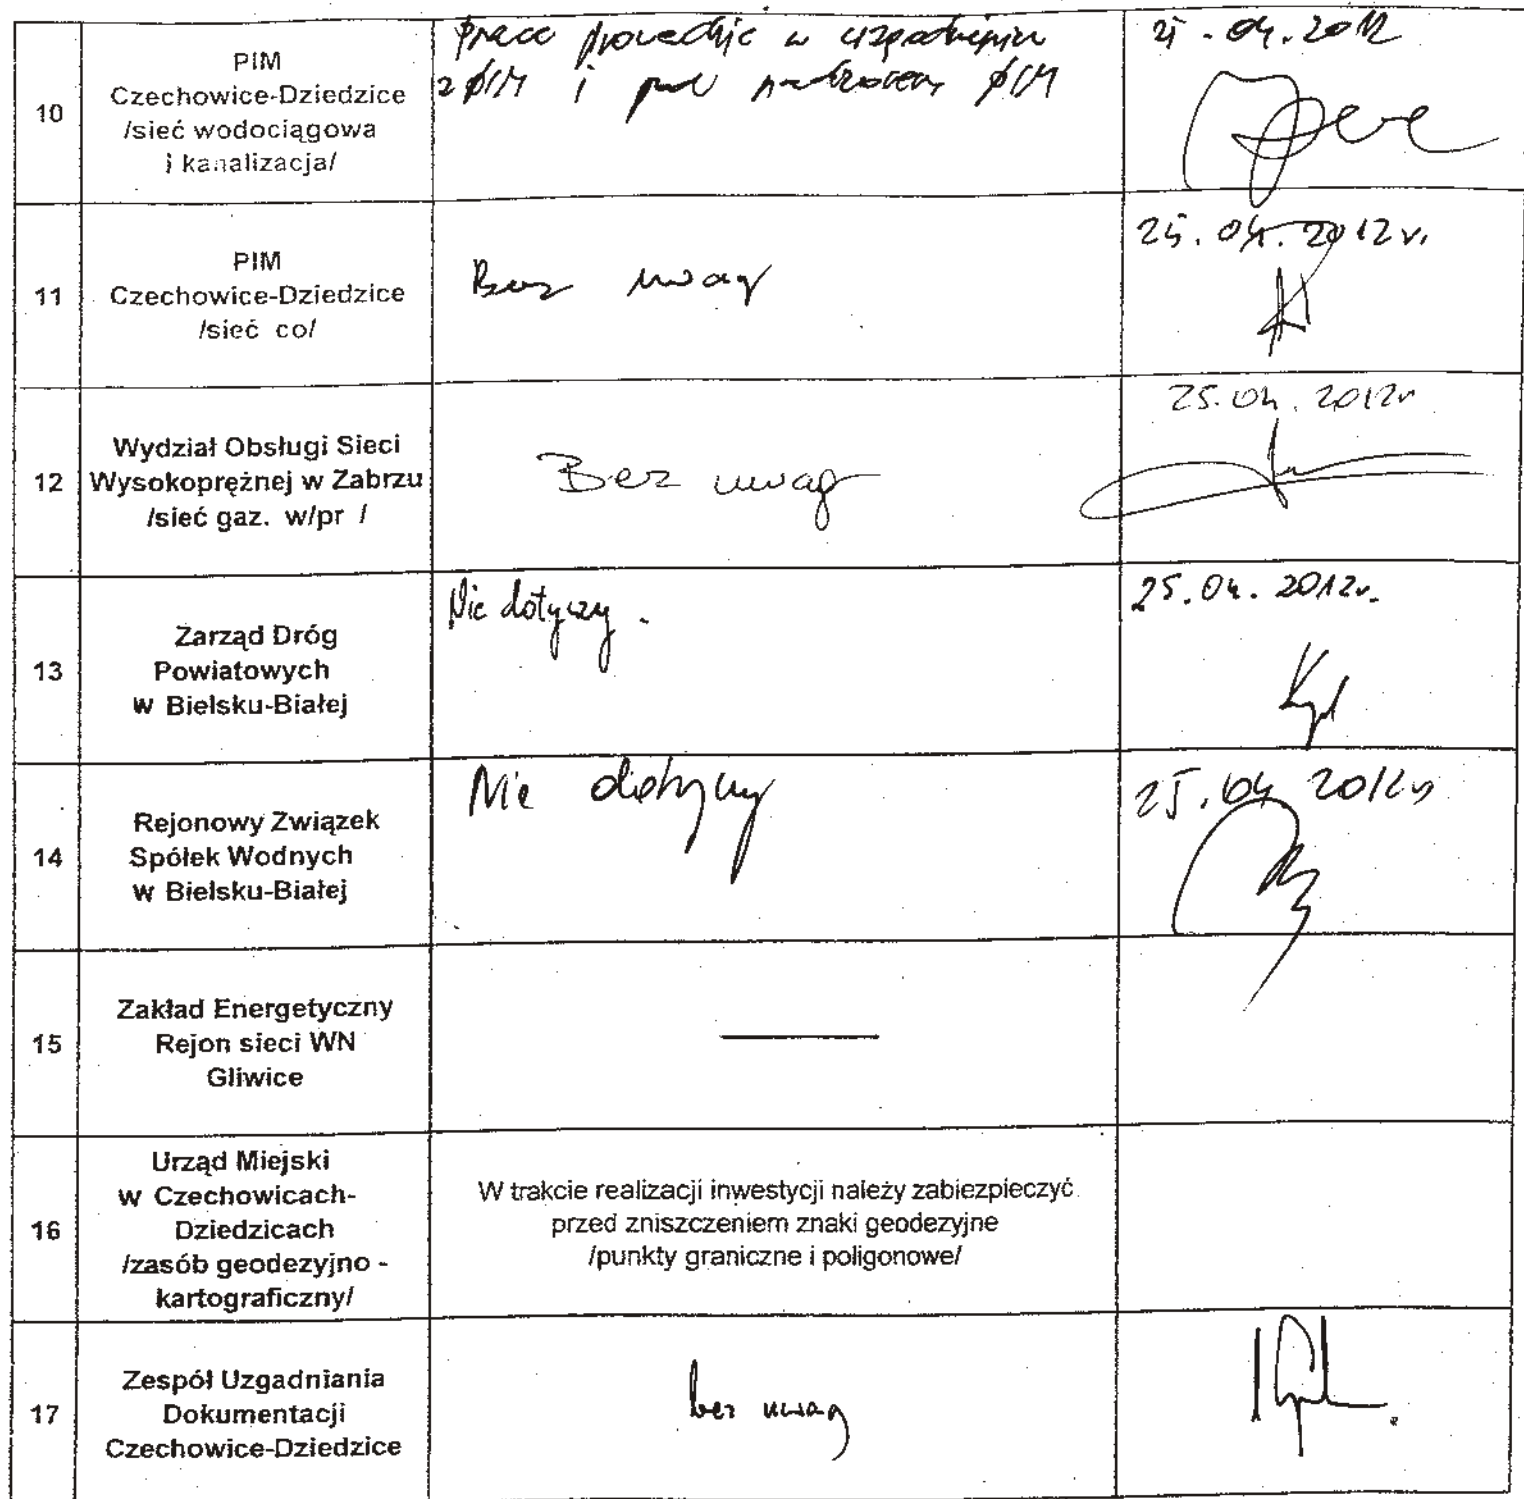 10
PIM
Czechowice-Dziedzice
/sieć wodociągowa
i kanalizacja/
prace prowadzić w uzgodnieniu
z PIM i pod nadzorem PIM
25.04.2012
11
PIM
Czechowice-Dziedzice
/sieć co/
Bez uwag
25.04.2012r.
12
Wydział Obsługi Sieci
Wysokoprężnej w Zabrzu
/sieć gaz. w/pr /
Bez uwag
25.04.2012r
13
Zarząd Dróg
Powiatowych
w Bielsku-Białej
Nie dotyczy.
25.04.2012r.
14
Rejonowy Związek
Spółek Wodnych
w Bielsku-Białej
Nie dotyczy
25.04 2012r
15
Zakład Energetyczny
Rejon sieci WN
Gliwice
16
Urząd Miejski
w Czechowicach-
Dziedzicach
/zasób geodezyjno -
kartograficzny/
W trakcie realizacji inwestycji należy zabiezpieczyć
przed zniszczeniem znaki geodezyjne
/punkty graniczne i poligonowe/
17
Zespół Uzgadniania
Dokumentacji
Czechowice-Dziedzice
bez uwag